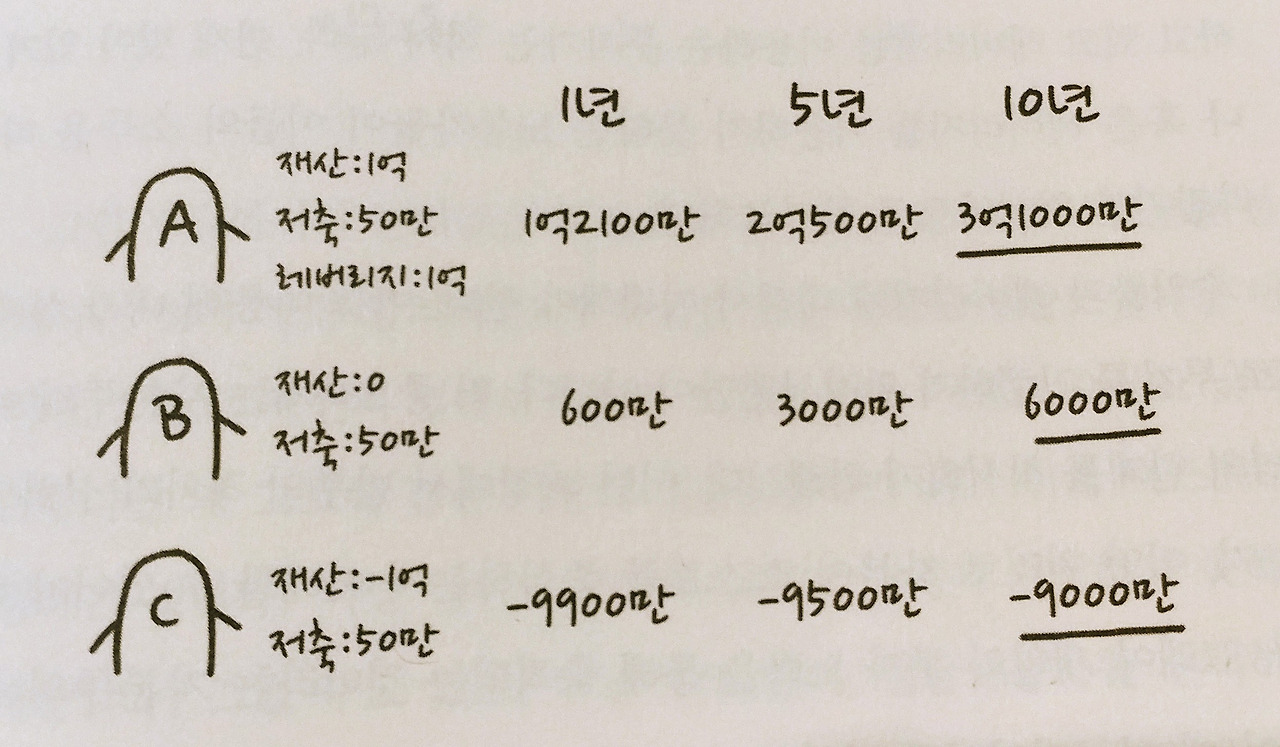 1년 5년 10년
A
재산:1억
저축:50만 1억2100만 2억500만 3억1000만
레버리지:1억
B
재산:0
600만 3000만 6000만
저축:50만
C
재산:-1억
-9900만 -9500만 -9000만
저축:50만